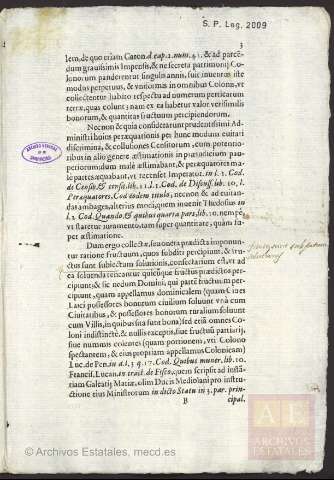 S. P. Leg. 2009
3
lem, de quo etiam Caron. d. cap. 2. num. 41. & ad parcen
dum grauissimis Impensis, & ne secreta patrimonij Co-
lonorum panderentur singulis annis, fuit inuentus iste
modus perpetuus, & vniformis in omnibus Colonis, vt
collectentur habito respectu ad numerum perticarum
terræ, quas colunt; nam ex ea habetur valor verisimilis
bonorum, & quantitas fructuum percipiendorum.
Necnon & quia considerarunt prudentissimi Ad-
ministri huius peræquationis per hunc modum euitari
discrimina, & collusiones Censitorum, cum potentio-
ribus in alio genere æstimationis in præiudicium pau-
periorum dum malè æstimabant, & peræquatores ma-
lè partes æquabant, vt recenset Imperator. in l. 2. Cod.
de Censib. & censit. lib. 11. l. 2. Cod. de Discuss. lib. 10. l.
Peræquatores. Cod. eodem titulo, necnon & ad euitan-
das ambages, alterius modi, quem inuenit Theodosius in
l. 1. Cod. Quando, & quibus quarta pars. lib. 10. nempè
vt staretur iuramento, tam super quantitate, quàm su-
per æstimatione.
Dum ergo collectæ, seu onera prædicta imponun-
tur ratione fructuum, quos subditi percipiunt, & fru-
ctus sunt subiectum solutionis, consectarium est, vt ad
ea soluenda teneantur quicúnque fructus prædictos per-
cipiunt; & sic nedum Domini, qui parte fructuum per-
cipiunt, quam appellamus dominicalem (quam si-
uè possessores bonorum ciuilium soluunt vnà cum
Ciuitatibus, & possessores bonorum ruralium soluunt
cum Villis, in quibus sita sunt bona) sed etiā omnes Co-
loni indistinctè, & nullis exceptis, siue fructus partiarij,
siue nummos colentes (quam portionem, vti Colono
spectantem, & eius propriam appellamus Colonicam)
Luc. de Pen. in d. l. 3. q. 17. Cod. Quibus muner. lib. 10.
Francisc. Lucan. in tract. de Fisco, quem scripsit ad instan-
tiam Galeatij Matiæ, olim Ducis Mediolani pro instru-
ctione eius Ministrorum in dicto Statu in 3. par. prin-
B
cipal.
© Archivos Estatales, mecd.es
ARCHIVOS
ESTATALES